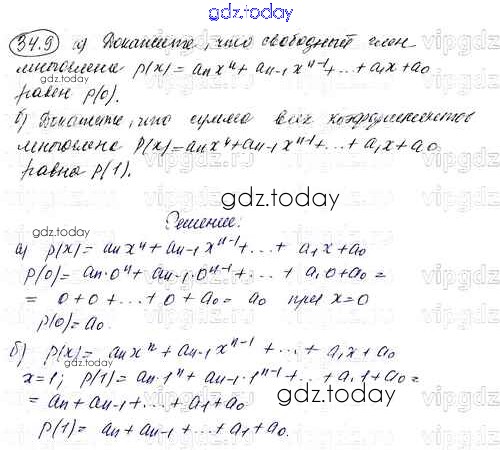 gdz.today
34.9 а) Докажите, что свободный член
многочлена p(x) = aₙxⁿ + aₙ₋₁xⁿ⁻¹ + ... + a₁x + a₀
равен p(0).
б) Докажите, что сумма всех коэффициентов
многочлена P(x) = aₙxⁿ + aₙ₋₁xⁿ⁻¹ + ... + a₁x + a₀
равна p(1).
gdz.today
Решение:
а) p(x) = aₙxⁿ + aₙ₋₁xⁿ⁻¹ + ... + a₁x + a₀
p(0) = aₙ·0ⁿ + aₙ₋₁·0ⁿ⁻¹ + ... + a₁0 + a₀ =
= 0 + 0 + ... + 0 + a₀ = a₀ при x = 0
p(0) = a₀.
gdz.today
б) p(x) = aₙxⁿ + aₙ₋₁xⁿ⁻¹ + ... + a₁x + a₀
x = 1; p(1) = aₙ·1ⁿ + aₙ₋₁·1ⁿ⁻¹ + ... + a₁1 + a₀ =
= aₙ + aₙ₋₁ + ... + a₁ + a₀
gdz.today
p(1) = aₙ + aₙ₋₁ + ... + a₁ + a₀.